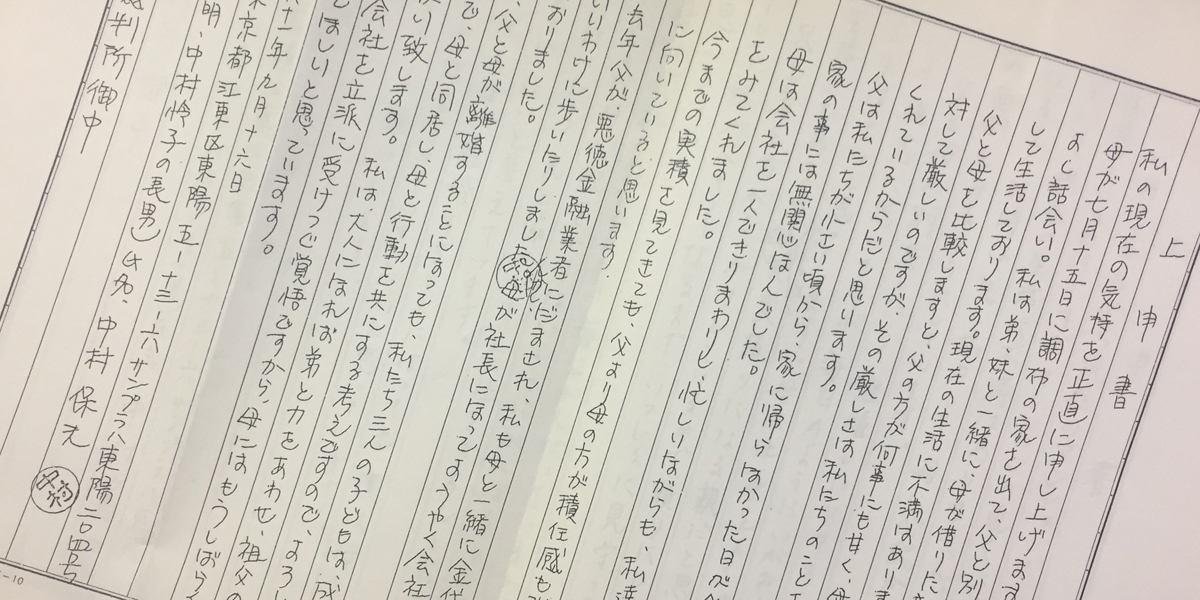 上申書
私の現在の気持を正直に申し上げます
母が七月十五日に調布の家を出て、父と別
よく話会い。私は弟、妹と一緒に、母が借りた
して生活しております。現在の生活に不満はあり
父と母を比較しますと、父の方が何事にも甘く、母
対して厳しいのですが、その厳しさは私たちのこと
くれているからだと思います。
父は私たちが小さい頃から、家に帰らなかった日
家の事には無関心なんでした。
母は会社を一人できりまわりし、忙しいながらも、私達
をみてくれました。
今までの実積を見てきても、父より母の方が積任感も
に向いていると思います。
去年父が、悪徳金融業者にだまされ、私も母と一緒に金
いいわけに歩いたりしまし
おりました。母が社長になってようやく会社
父と母が離婚することになっても、私たち三人の子どもは、成
で、母と同居し、母と行動を共にする考えですので、よろし
い致します。私は、大人になれば弟と力をあわせ、祖父の
会社を立派に受けつぐ覚悟ですから、母にはもうしばら
てほしいと思っています。
十一年九月十六日
東京都江東区東陽五-十三-六サンプラハ東陽二〇四号
明、中村怜子の長男)氏名、中村保
裁判所御中
-10